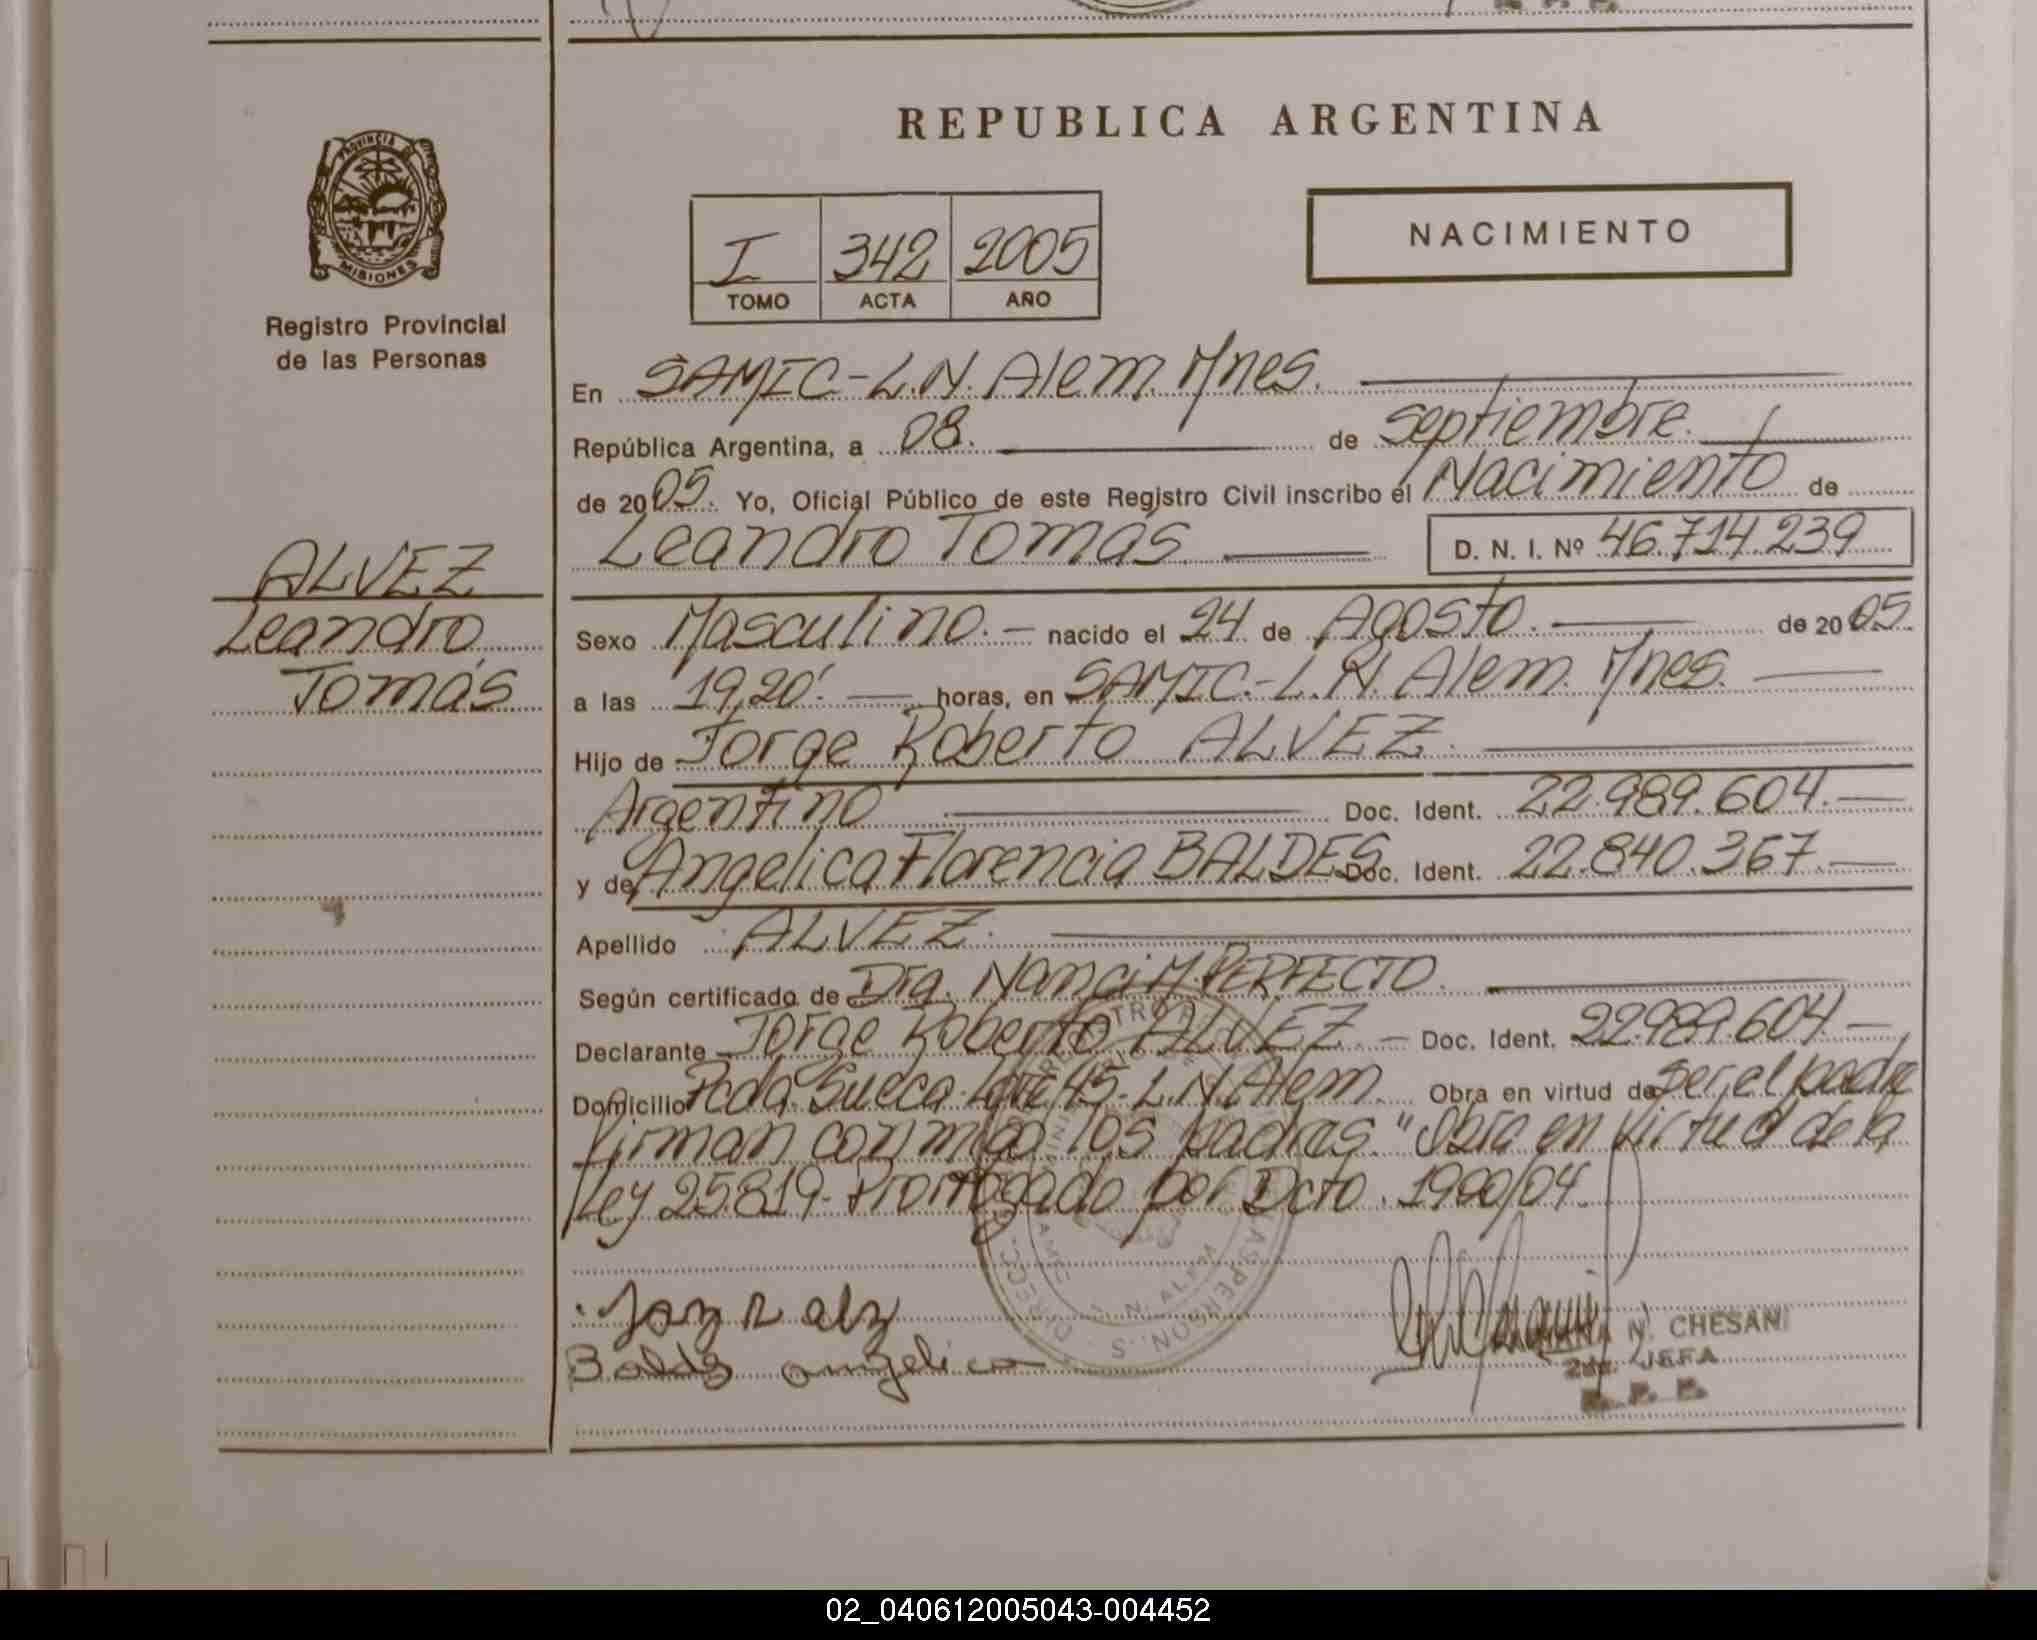 REPUBLICA ARGENTINA
PROVINCIA DE
MISIONES
Registro Provincial
de las Personas
I 342 2005
TOMO ACTA AÑO
NACIMIENTO
En SAMIC-L.N. Alem. Mnes.
República Argentina, a 08. de septiembre.
de 2005. Yo, Oficial Público de este Registro Civil inscribo el Nacimiento de
Leandro Tomás D. N. I. Nº 46.714.239
ALVEZ
Leandro
Tomás
Sexo Masculino.- nacido el 24 de Agosto. de 2005.
a las 19,20'. horas, en SAMIC.-L.N. Alem. Mnes.
Hijo de Jorge Roberto ALVEZ.
Argentino Doc. Ident. 22.989.604.-
y de Angelica Florencia BALDES Doc. Ident. 22.840.367-
Apellido ALVEZ.
Según certificado de Dra. Nanci M. PERFECTO.
Declarante Jorge Roberto ALVEZ.- Doc. Ident. 22.989.604-
Domicilio Pcda. Sueca-Lote 45-L.N. Alem. Obra en virtud de ser el padre
Firman conmigo los padres. "Obra en virtud de la
Ley 25.819- Prorrogado por Dcto. 1990/04.
Baldes angelica
N. CHESANI
2da. JEFA
R. P. P.
02_040612005043-004452